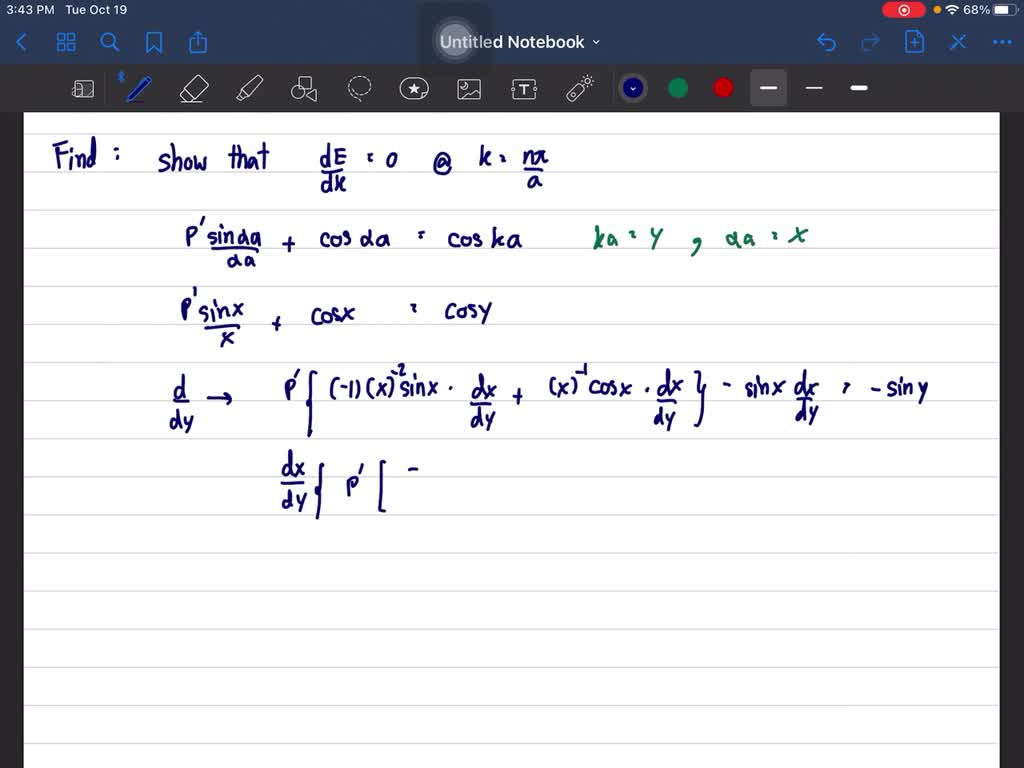 3:43 PM Tue Oct 19 68%
Untitled Notebook
Find : show that dE/dk = 0 @ k = nπ/a
P' sin αa/αa + cos αa = cos ka ka = y , αa = x
P' sin x/x + cos x = cos y
d/dy → P' { (-1)(x)^-2 sin x · dx/dy + (x)^-1 cos x · dx/dy } - sin x dx/dy = - sin y
dx/dy { P' [ -